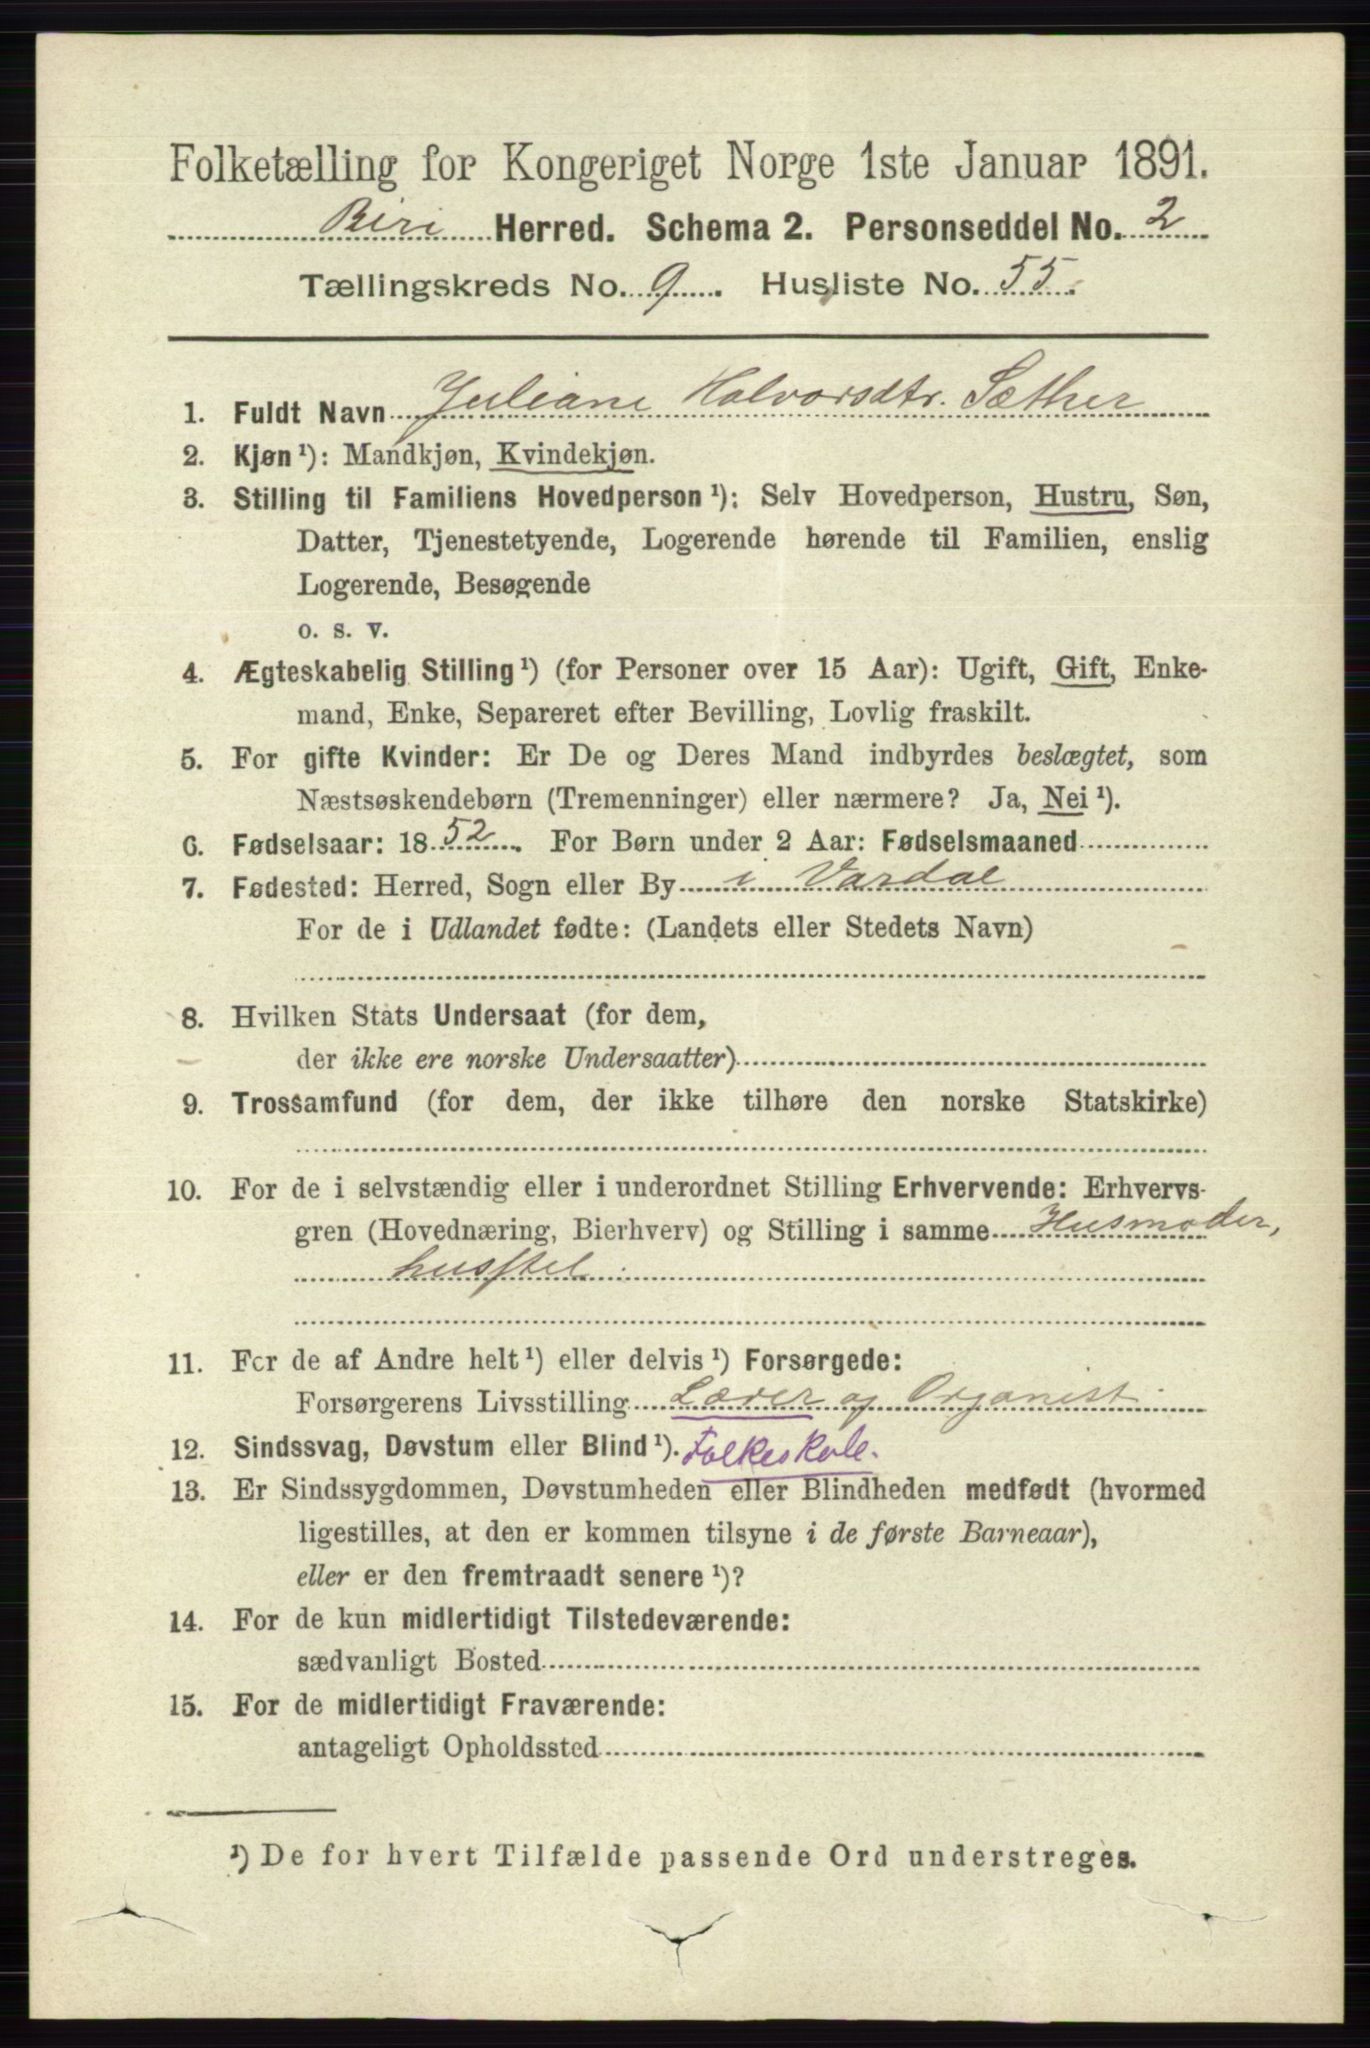 Folketælling for Kongeriget Norge 1ste Januar 1891.
Biri Herred. Schema 2. Personseddel No. 2
Tællingskreds No. 9. Husliste No. 55.
1. Fuldt Navn Juliane Halvorsdtr. Sæther
2. Kjøn¹): Mandkjøn, Kvindekjøn.
3. Stilling til Familiens Hovedperson¹): Selv Hovedperson, Hustru, Søn,
Datter, Tjenestetyende, Logerende hørende til Familien, enslig
Logerende, Besøgende
o. s. v.
4. Ægteskabelig Stilling¹) (for Personer over 15 Aar): Ugift, Gift, Enke-
mand, Enke, Separeret efter Bevilling, Lovlig fraskilt.
5. For gifte Kvinder: Er De og Deres Mand indbyrdes beslægtet, som
Næstsøskendebørn (Tremenninger) eller nærmere? Ja, Nei¹).
6. Fødselsaar: 1852. For Børn under 2 Aar: Fødselsmaaned
7. Fødested: Herred, Sogn eller By i Vardal
For de i Udlandet fødte: (Landets eller Stedets Navn)
8. Hvilken Stats Undersaat (for dem,
der ikke ere norske Undersaatter)
9. Trossamfund (for dem, der ikke tilhøre den norske Statskirke)
10. For de i selvstændig eller i underordnet Stilling Erhvervende: Erhvervs-
gren (Hovednæring, Bierhverv) og Stilling i samme Husmoder,
husstel
11. For de af Andre helt¹) eller delvis¹) Forsørgede:
Forsørgerens Livsstilling Lærer og Organist
12. Sindssvag, Døvstum eller Blind¹). Folkeskole.
13. Er Sindssygdommen, Døvstumheden eller Blindheden medfødt (hvormed
ligestilles, at den er kommen tilsyne i de første Barneaar),
eller er den fremtraadt senere¹)?
14. For de kun midlertidigt Tilstedeværende:
sædvanligt Bosted
15. For de midlertidigt Fraværende:
antageligt Opholdssted
¹) De for hvert Tilfælde passende Ord understreges.